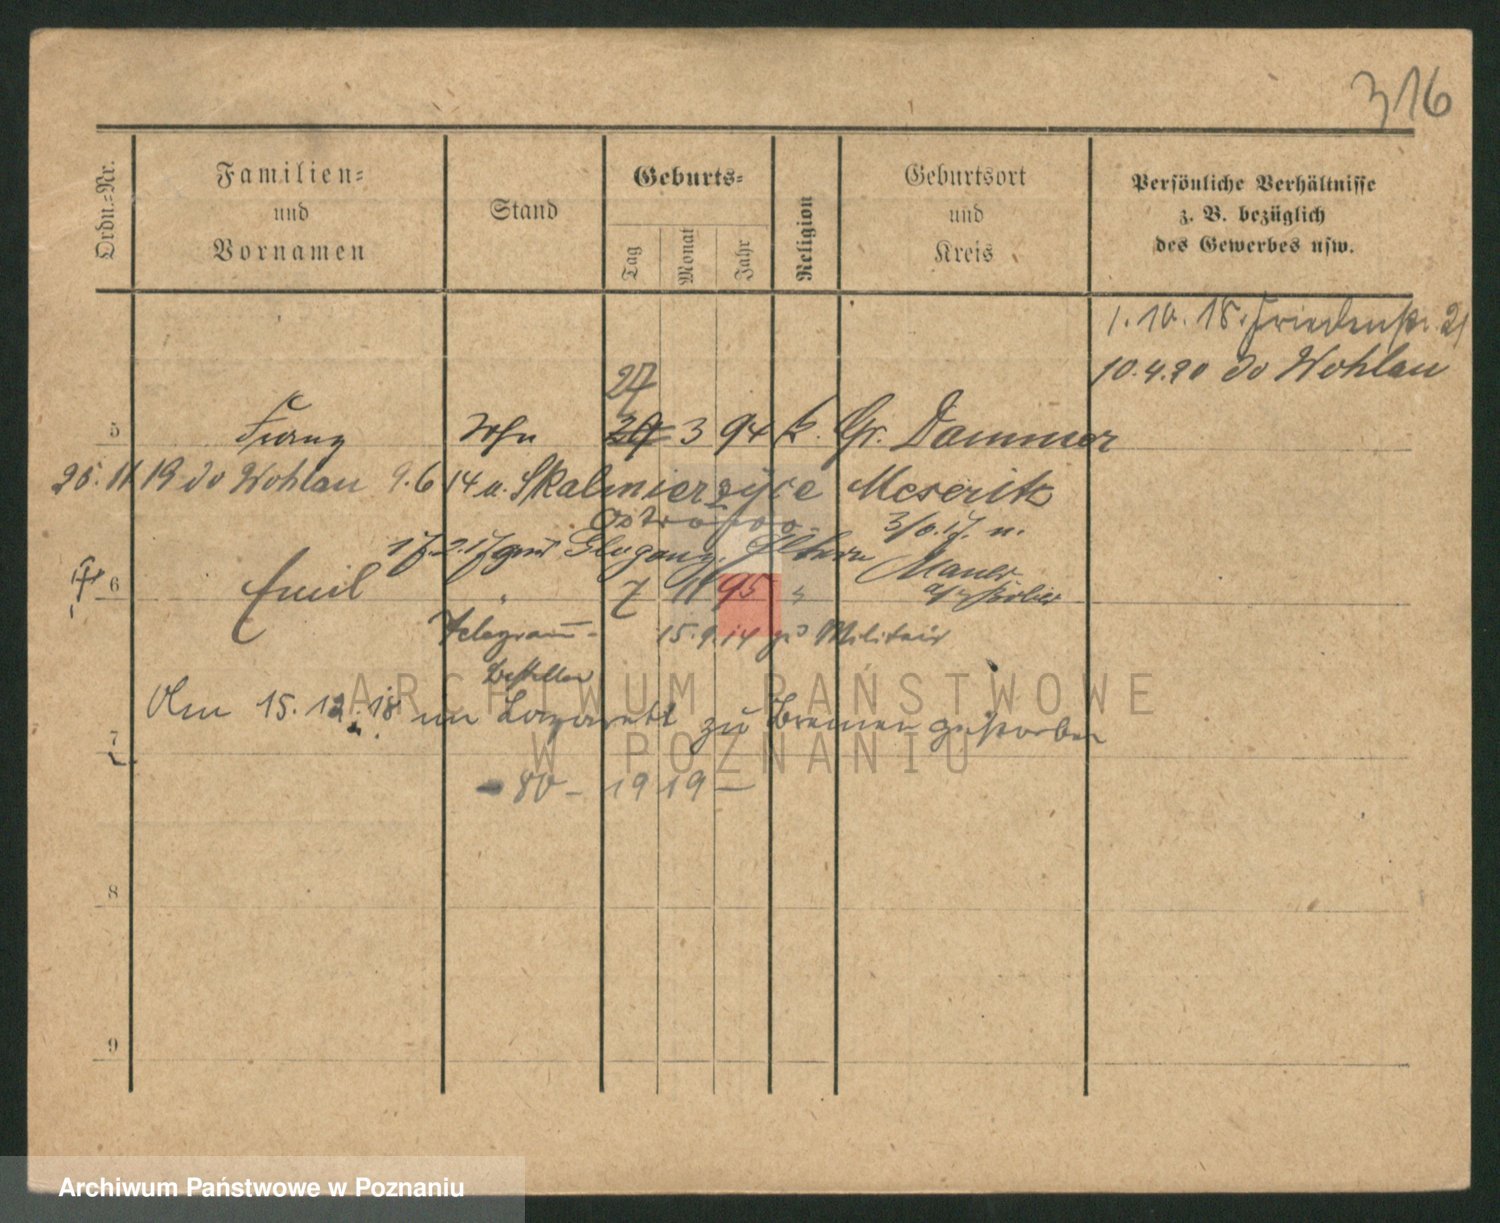 316
Ordn.-Nr.
Familien-
und
Vornamen
Stand
Geburts-
Tag
Monat
Jahr
Religion
Geburtsort
und
Kreis
Persönliche Verhältnisse
z. B. bezüglich
des Gewerbes usw.
1.10.18. Friedenstr. 21
10.4.20 do Wohlau
27
5 Franz Sohn 3 94 k. Gr. Dammer
25.11.19 do Wohlau 9.6 14 n. Skalmierzyce Meseritz
Ostrowo 3/10.17. n.
17.2.17 Eltern
6 Emil " 7 11 95 "
Telegramm- 15.9.14 zum Militair
besteller
Am 15.12.18 im Lazarett zu Bremen gestorben
7
- 80 - 1919 -
8
9
ARCHIWUM PAŃSTWOWE
W POZNANIU
Archiwum Państwowe w Poznaniu